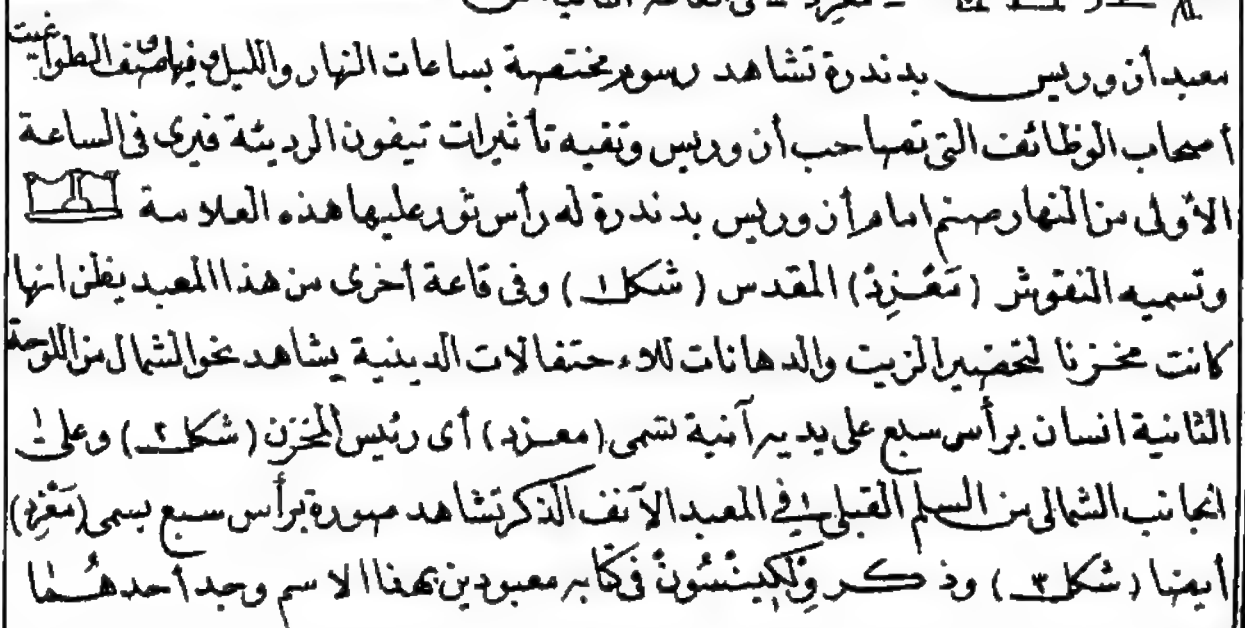 معبد أن وريس بدندرة تشاهد رسوم مختصة بساعات النهار والليل وفيها صنف الطواغيت
أصحاب الوظائف التى تصاحب أن وريس وتقيه تأثيرات تيفون الرديئة فيرى فى الساعة
الأولى من النهار صنم امام أن وريس بدندرة له رأس ثور عليها هذه العلامة
وتسميه النقوش (مَعْزِدْ) المقدس (شكل ١) وفى قاعة أخرى من هذا المعبد يظن انها
كانت مخزنا لتحضير الزيت والدهانات للاحتفالات الدينية يشاهد نحو الشمال من اللوحة
الثانية انسان برأس سبع على يديه آنية تسمى (معزد) أى رئيس المخزن (شكل ٢) وعلى
الجانب الشمالى من السلم القبلى فى المعبد الآنف الذكر تشاهد صورة برأس سبع يسمى (مَعْزِد)
أيضا (شكل ٣) وذكر ولكينسون فى كتابه معبودين بهذا الاسم وجد أحدهما